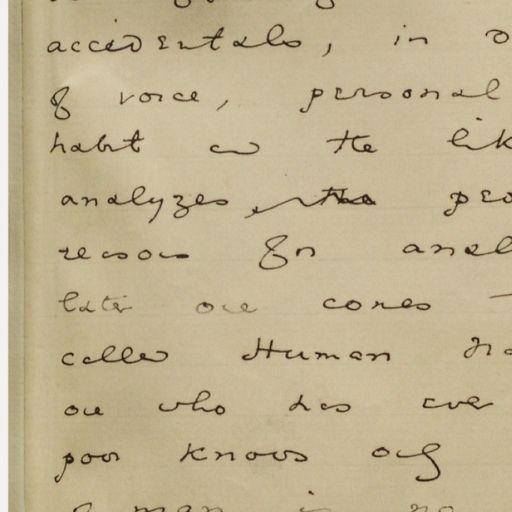 accidentals, in
of voice, personal
habit and the lik
analyzes the peo
reason for anal
later one comes
called Human na
one who has ever
poor knows only
a man is no